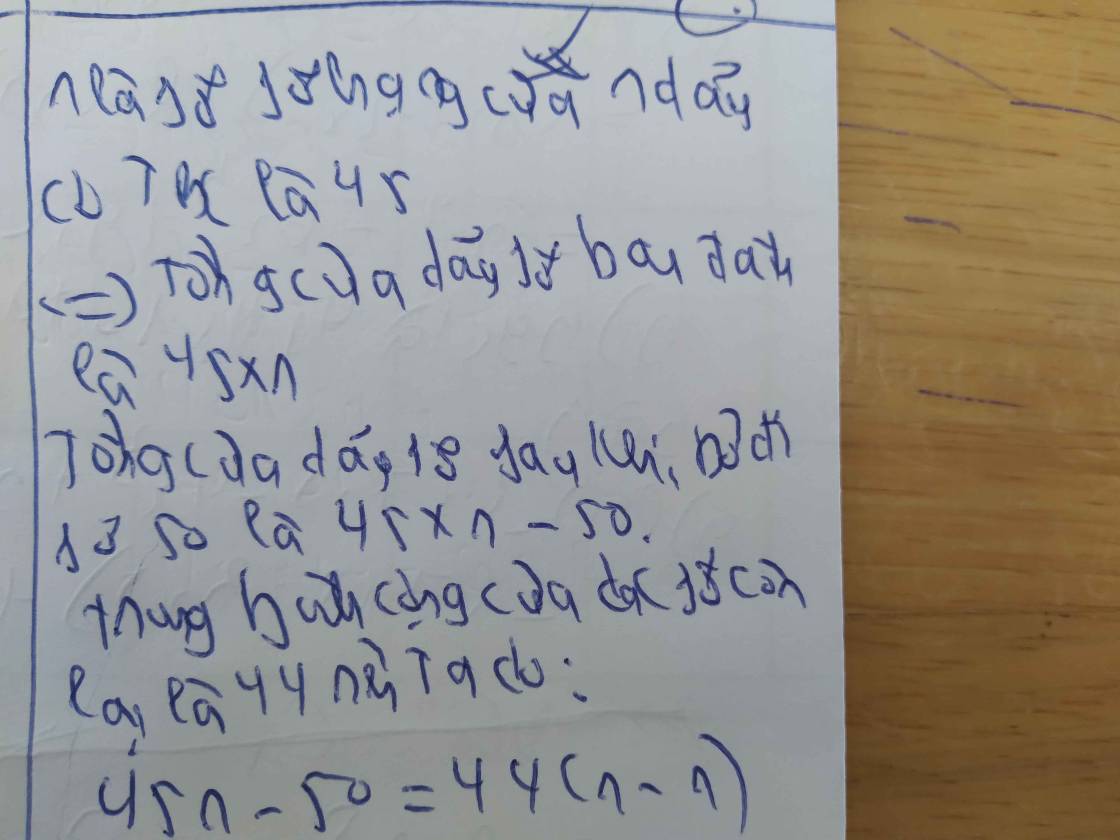 n là số số hạng của n dãy
có TBC là 45
<=> Tổng của dãy số ban đầu
là 45xn
Tổng của dãy số sau khi bỏ đi
số 50 là 45xn - 50.
trung bình cộng của các số còn
lại là 44 nên Ta có:
45n - 50 = 44(n - n)